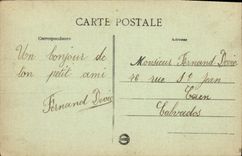 CARTE POSTALE
Correspondance
Adresse
Un bonjour de
ton petit ami
Fernand
Monsieur Fernand
rue St Jean
Caen
Calvados